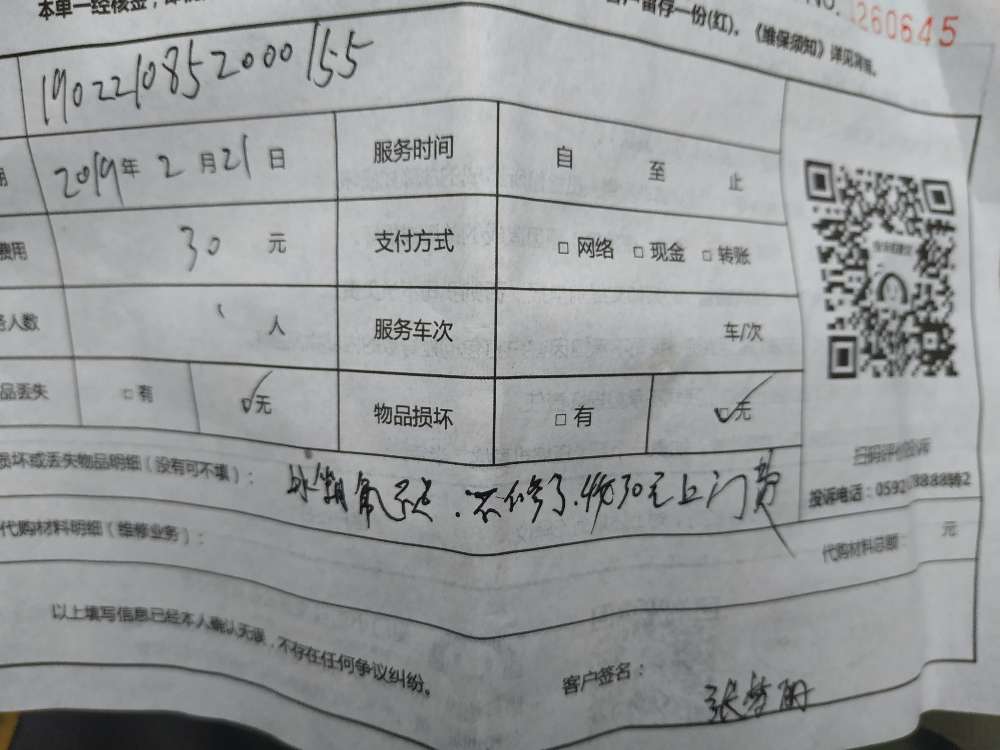 本单一经核金,
客户留存一份(红)。《维保须知》详见背面。
NO. 260645
1902210852000155
2019年 2 月 21 日
服务时间 自 至 止
费用 30 元
支付方式 □ 网络 □ 现金 □ 转账
人数 人
服务车次 车/次
品丢失 □ 有 ☑ 无
物品损坏 □ 有 ☑ 无
损坏或丢失物品明细(没有可不填):
不修了,收30元上门费
扫码评价投诉
投诉电话:0592 8888转2
代购材料明细(维修业务):
代购材料总额: 元
以上填写信息已经本人确认无误,不存在任何争议纠纷。
客户签名: